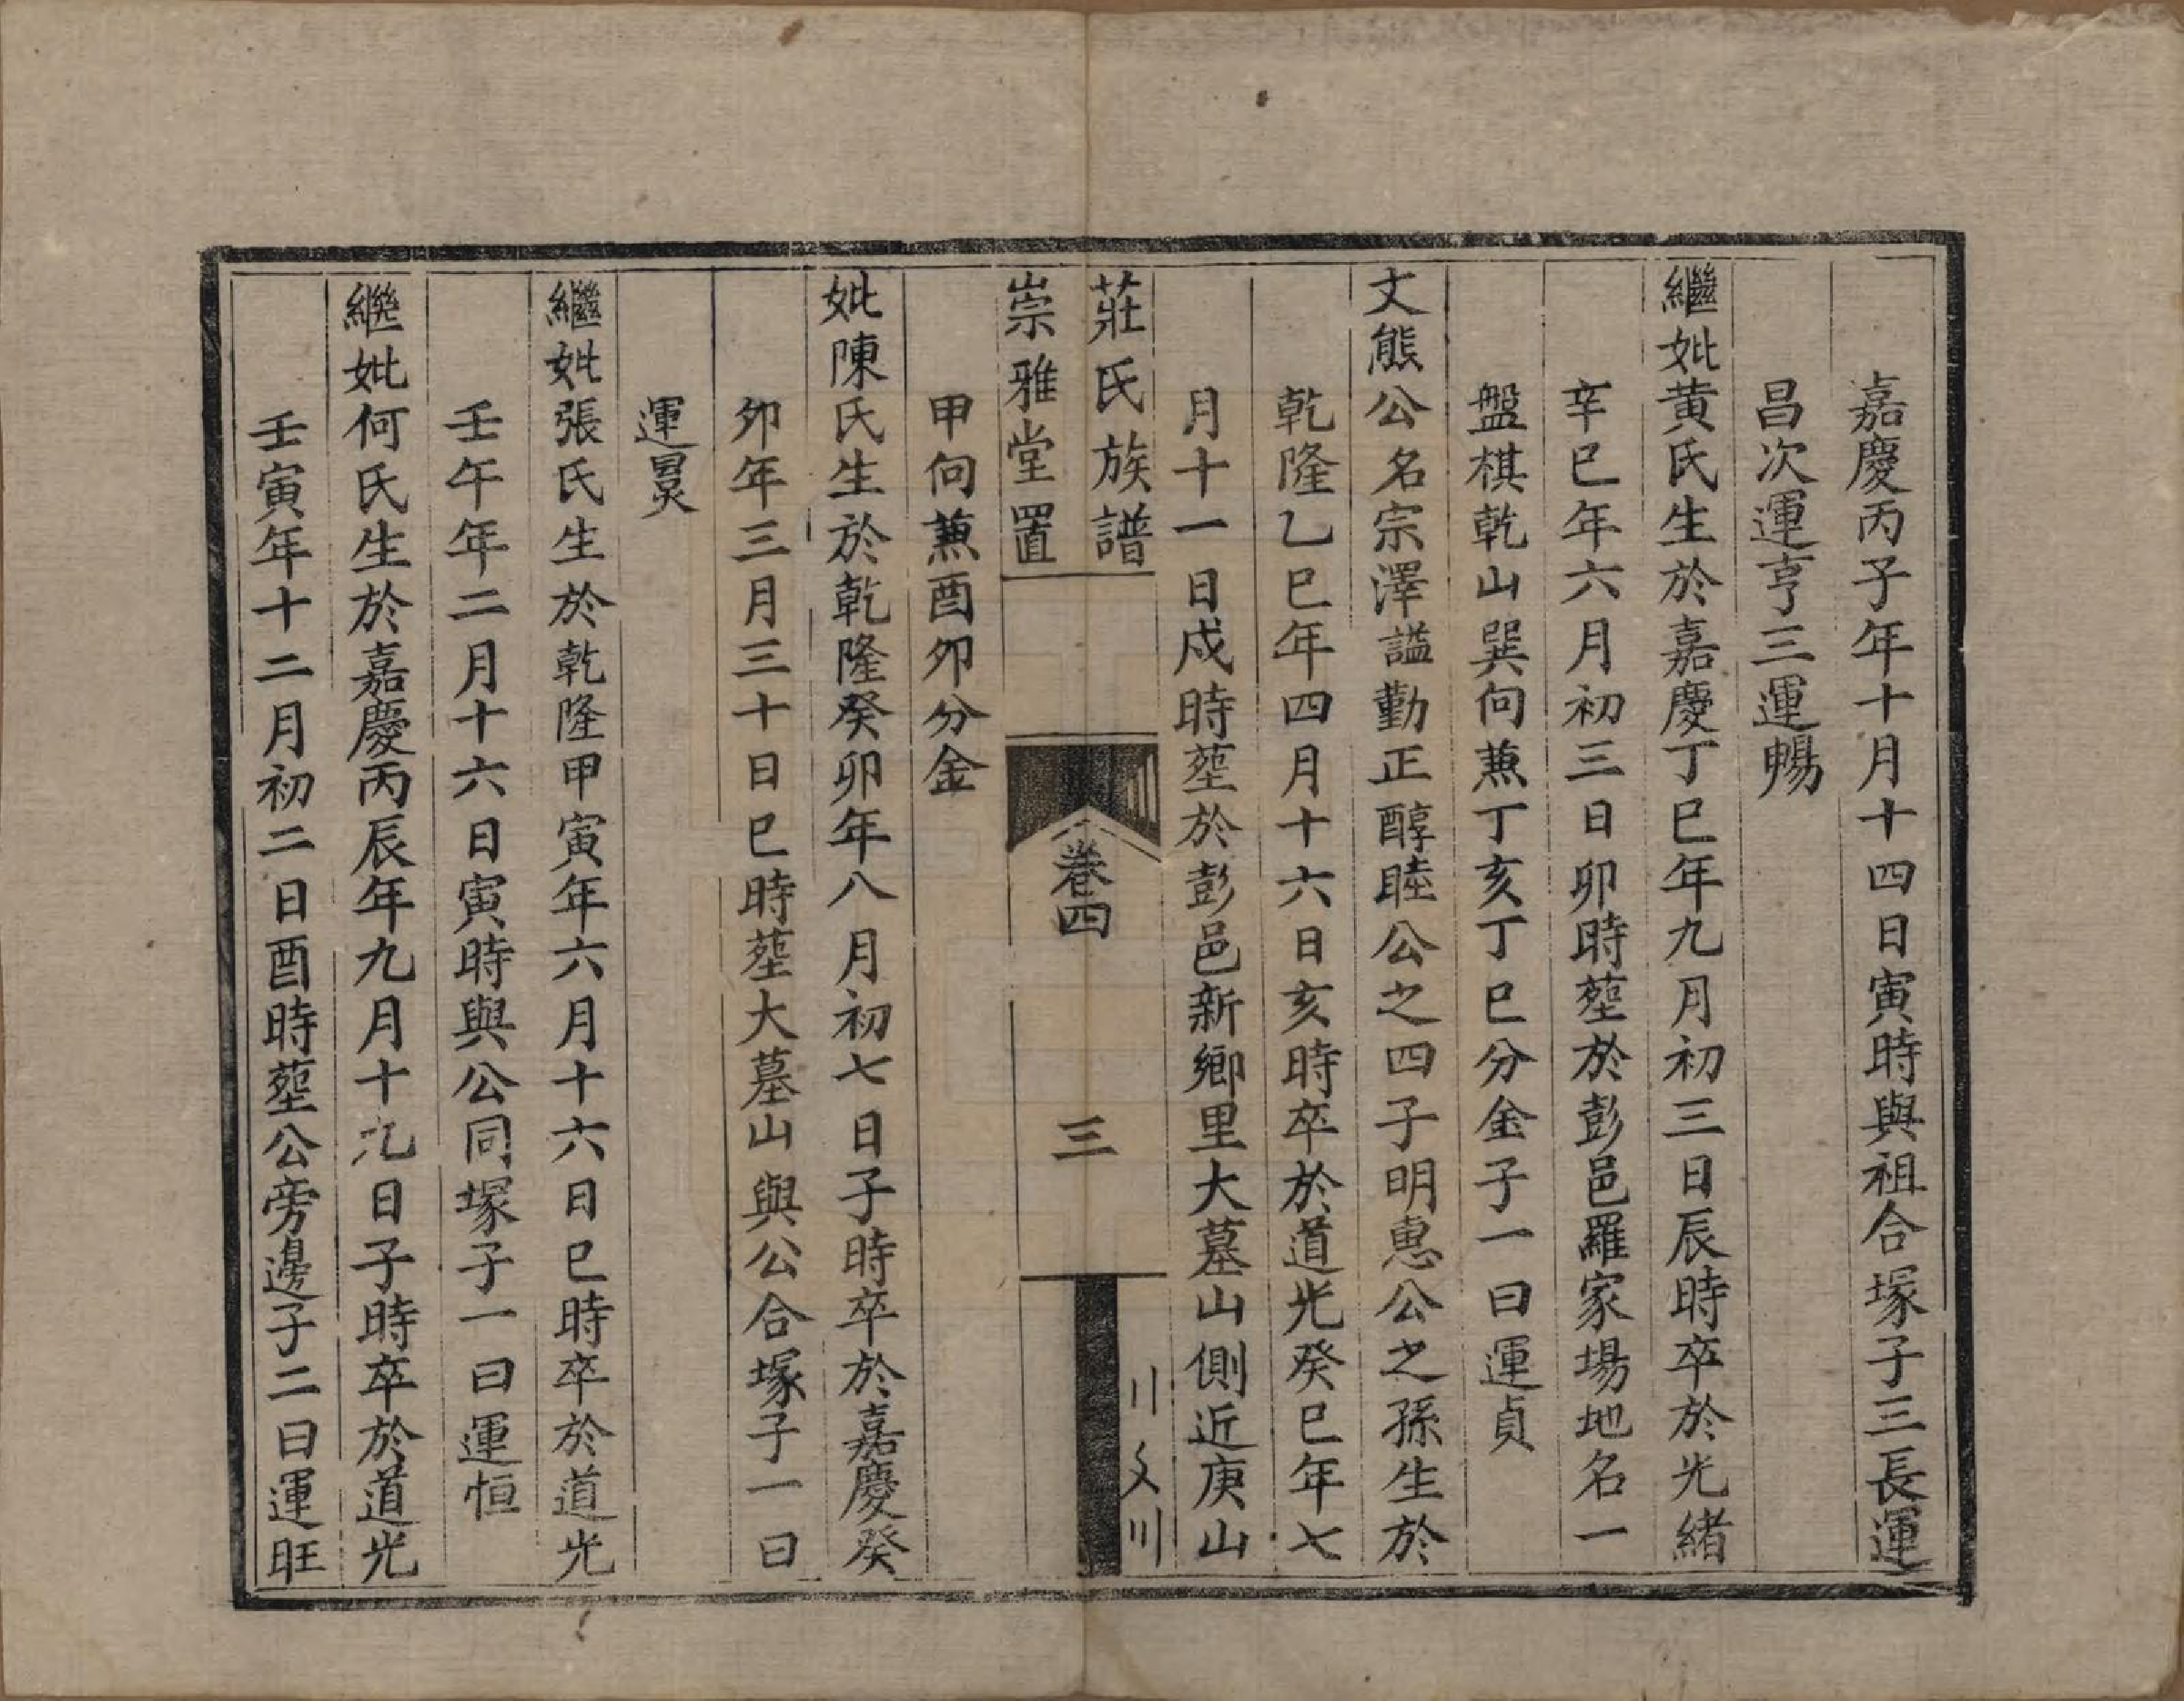 嘉慶丙子年十月十四日寅時與祖合塚子三長運
昌次運亨三運暢
繼妣黄氏生於嘉慶丁巳年九月初三日辰時卒於光緒
辛巳年六月初三日卯時塟於彭邑羅家場地名一
盤棋乾山巽向兼丁亥丁巳分金子一曰運貞
文熊公名宗澤謚勤正醇睦公之四子明惠公之孫生於
乾隆乙巳年四月十六日亥時卒於道光癸巳年七
月十一日戌時塟於彭邑新鄉里大墓山側近庚山
莊氏族譜
崇雅堂置
卷四
三
甲向兼酉卯分金
妣陳氏生於乾隆癸卯年八月初七日子時卒於嘉慶癸
卯年三月三十日巳時塟大墓山與公合塚子一曰
運炅
繼妣張氏生於乾隆甲寅年六月十六日巳時卒於道光
壬午年二月十六日寅時與公同塚子一曰運恒
繼妣何氏生於嘉慶丙辰年九月十九日子時卒於道光
壬寅年十二月初二日酉時塟公旁邊子二曰運旺